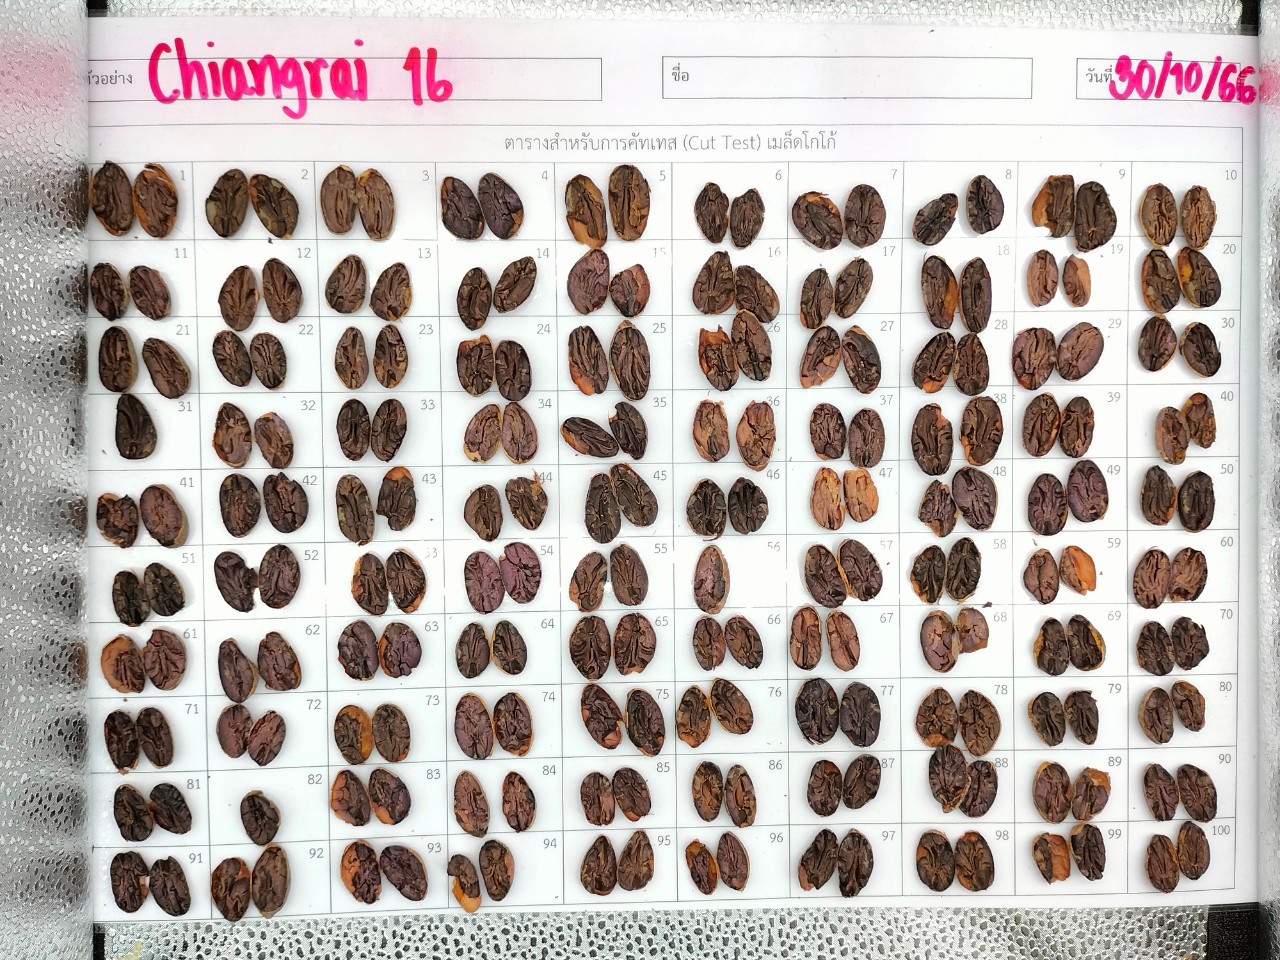 ตัวอย่าง Chiangrai 16 ชื่อ วันที่ 30/10/66
ตารางสำหรับการคัทเทส (Cut Test) เมล็ดโกโก้
1 2 3 4 5 6 7 8 9 10
11 12 13 14 15 16 17 18 19 20
21 22 23 24 25 26 27 28 29 30
31 32 33 34 35 36 37 38 39 40
41 42 43 44 45 46 47 48 49 50
51 52 53 54 55 56 57 58 59 60
61 62 63 64 65 66 67 68 69 70
71 72 73 74 75 76 77 78 79 80
81 82 83 84 85 86 87 88 89 90
91 92 93 94 95 96 97 98 99 100